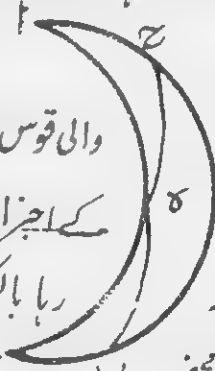 ا
ح
والی قوس
ہ
کے اجزا
رہا با